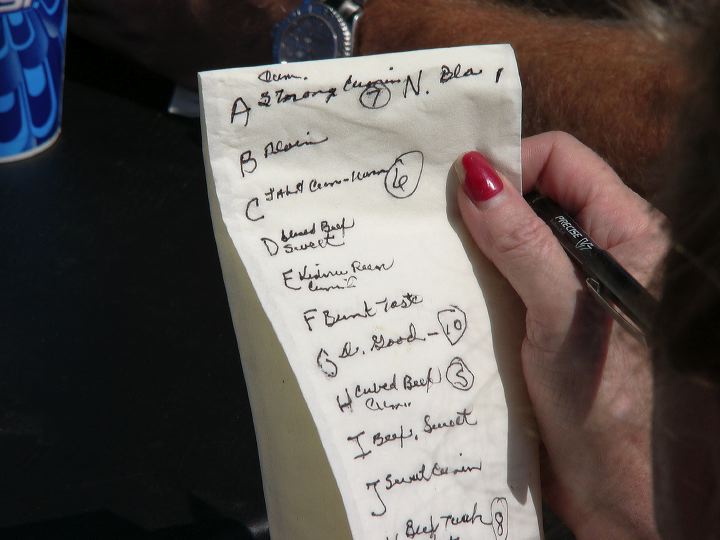 Cum.
A Strong Cumin 7 N. Bla
B Plain
C 6
D Cubed Beef
Sweet
E Kidney Bean
Cumin
F Burnt Taste
G V. Good - 10
H Cubed Beef 5
Cumin
I Beef, Sweet
J Sweet Cumin
Beef 8
PRECISE V5